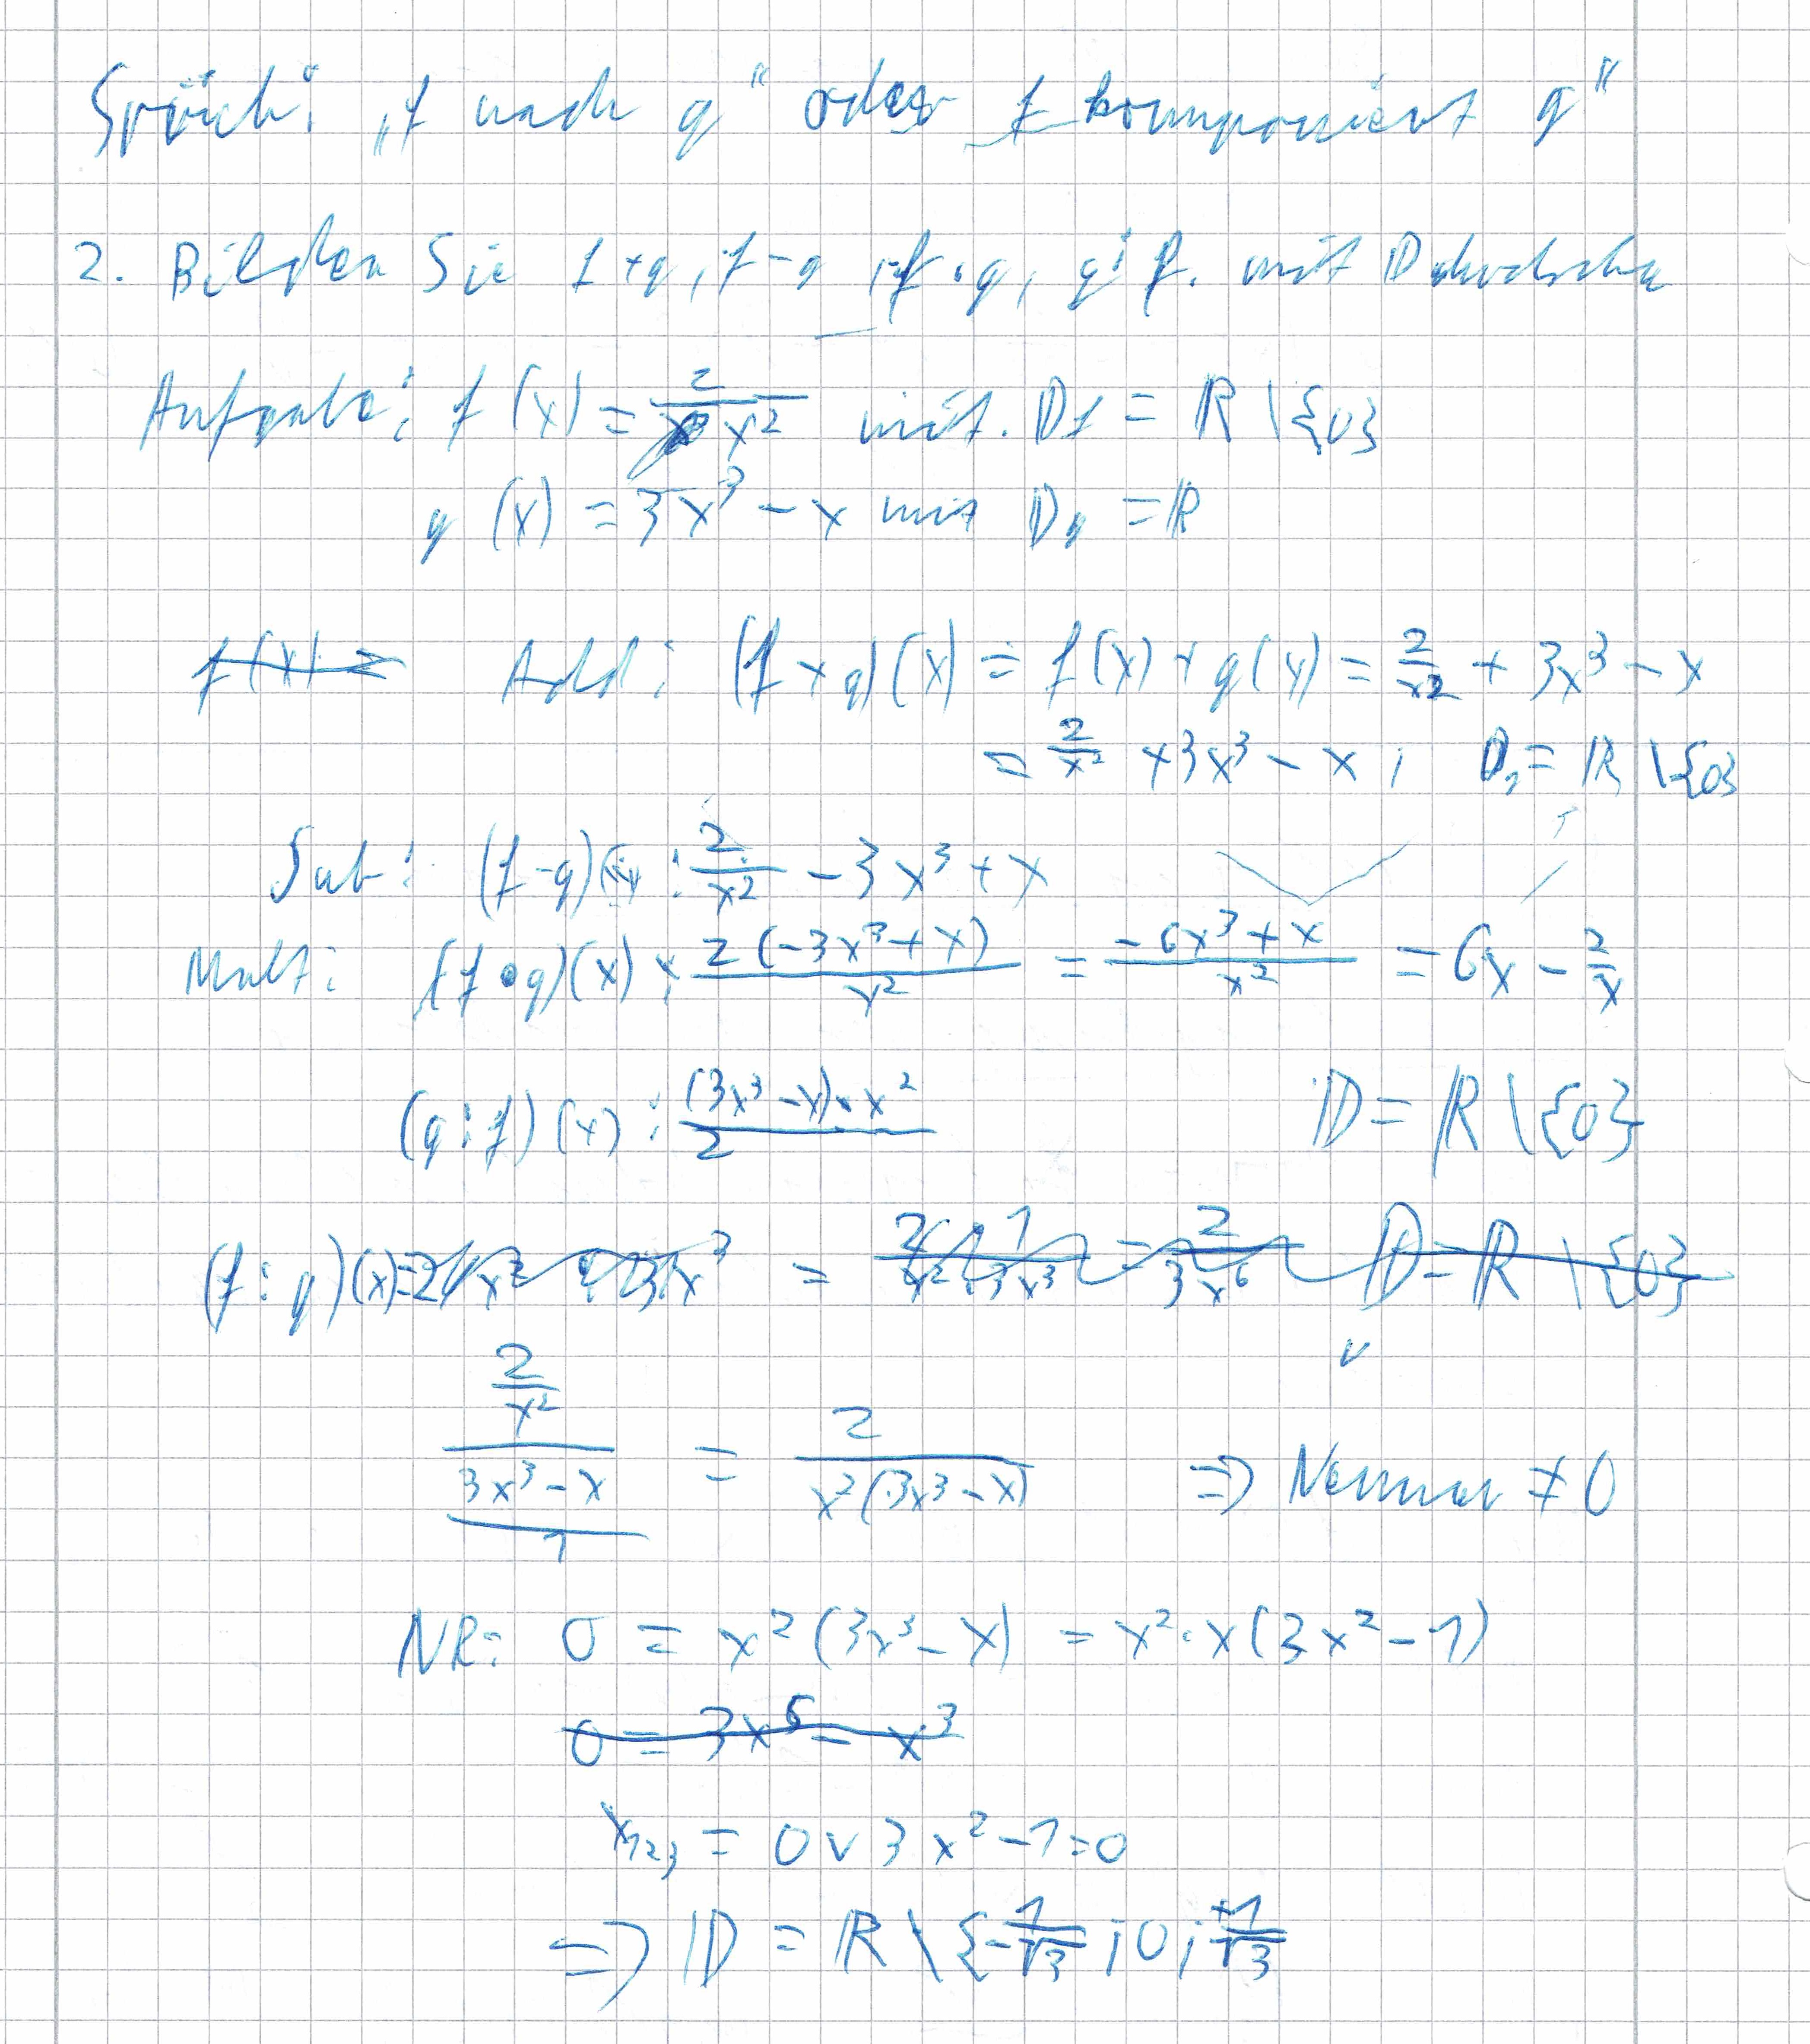 Sprich: „f nach g" oder f komponiert g"
2. Bilden Sie f+g, f-g, f·g, g:f. mit D
Aufgabe: f(x) = 2/x² mit. Df = ℝ \{0}
g(x) = 3x³ - x mit Dg = ℝ
f(x) → Add: (f+g)(x) = f(x) + g(x) = 2/x² + 3x³ - x
= 2/x² + 3x³ - x ; D = ℝ \{0}
Sub: (f-g)(x) : 2/x² - 3x³ + x
Mult: (f•g)(x) : 2(-3x³+x)/x² = -6x³+x/x² = 6x - 2/x
(g:f)(x) : (3x³-x)·x²/2 D = ℝ \{0}
(f:g)(x)=2/x² : 3x³ = 2/x² · 1/3x³ = 2/3x⁶ D = ℝ \{0}
2/x² / 3x³-x/1 = 2/x²(3x³-x) ⇒ Nenner ≠ 0
NR: 0 = x²(3x³-x) = x²·x(3x²-1)
0 = 3x⁵ - x³
x₁₂₃ = 0 ∨ 3x²-1=0
⇒ D = ℝ \ {-1/√3 ; 0 ; +1/√3